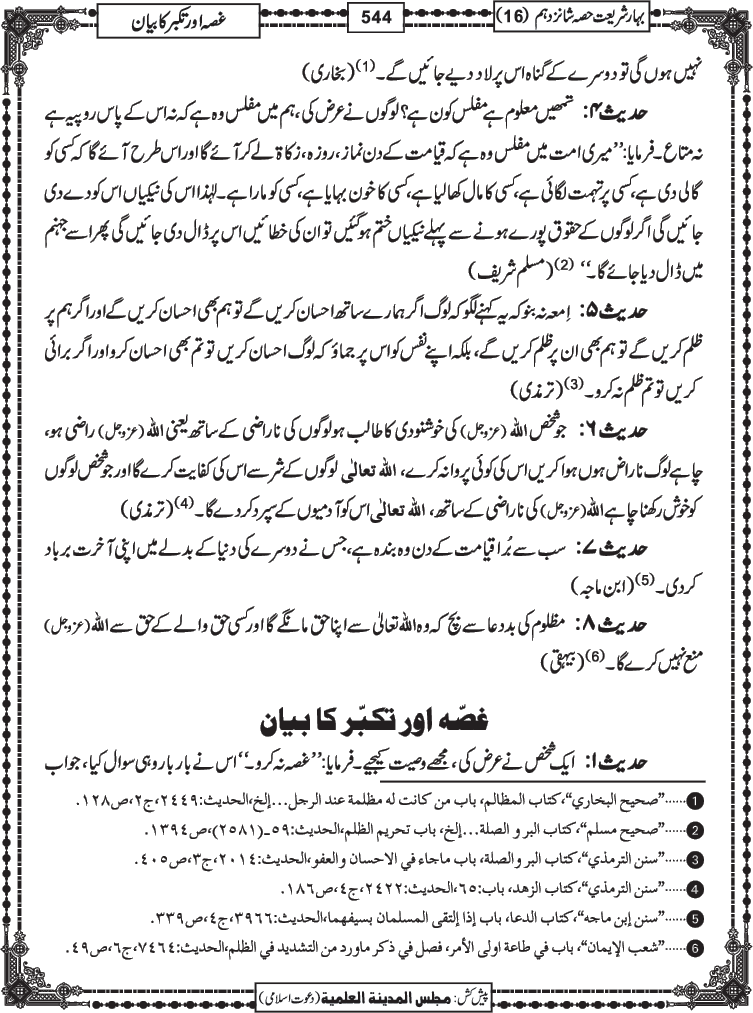 بہارِ شریعت حصہ شانزدہم (16)
544
غصہ اور تکبر کا بیان
نہیں ہوں گی تو دوسرے کے گناہ اس پر لاد دیے جائیں گے۔(1) (بخاری)
حدیث ۴: تمھیں معلوم ہے مفلس کون ہے؟ لوگوں نے عرض کی، ہم میں مفلس وہ ہے کہ نہ اس کے پاس روپیہ ہے
نہ متاع۔ فرمایا: ’’میری امت میں مفلس وہ ہے کہ قیامت کے دن نماز، روزہ، زکاۃ لے کر آئے گا اور اس طرح آئے گا کہ کسی کو
گالی دی ہے، کسی پر تہمت لگائی ہے، کسی کا مال کھا لیا ہے، کسی کا خون بہایا ہے، کسی کو مارا ہے۔ لہٰذا اس کی نیکیاں اس کو دے دی
جائیں گی اگر لوگوں کے حقوق پورے ہونے سے پہلے نیکیاں ختم ہوگئیں تو ان کی خطائیں اس پر ڈال دی جائیں گی پھر اسے جہنم
میں ڈال دیا جائے گا۔‘‘ (2) (مسلم شریف)
حدیث ۵: اِمعہ نہ بنو کہ یہ کہنے لگو کہ لوگ اگر ہمارے ساتھ احسان کریں گے تو ہم بھی احسان کریں گے اور اگر ہم پر
ظلم کریں گے تو ہم بھی ان پر ظلم کریں گے، بلکہ اپنے نفس کو اس پر جماؤ کہ لوگ احسان کریں تو تم بھی احسان کرو اور اگر برائی
کریں تو تم ظلم نہ کرو۔(3) (ترمذی)
حدیث ۶: جو شخص اللہ (عزوجل) کی خوشنودی کا طالب ہو لوگوں کی ناراضی کے ساتھ یعنی اللہ (عزوجل) راضی ہو،
چاہے لوگ ناراض ہوں ہوا کریں اس کی کوئی پروا نہ کرے، اللہ تعالٰی لوگوں کے شر سے اس کی کفایت کرے گا اور جو شخص لوگوں
کو خوش رکھنا چاہے اللہ (عزوجل) کی ناراضی کے ساتھ، اللہ تعالٰی اس کو آدمیوں کے سپرد کردے گا۔(4) (ترمذی)
حدیث ۷: سب سے بُرا قیامت کے دن وہ بندہ ہے، جس نے دوسرے کی دنیا کے بدلے میں اپنی آخرت برباد
کردی۔(5) (ابن ماجہ)
حدیث ۸: مظلوم کی بددعا سے بچ کہ وہ اللہ تعالیٰ سے اپنا حق مانگے گا اور کسی حق والے کے حق سے اللہ (عزوجل)
منع نہیں کرے گا۔(6) (بیہقی)
غصّہ اور تکبّر کا بیان
حدیث ۱: ایک شخص نے عرض کی، مجھے وصیت کیجیے۔ فرمایا: ’’غصہ نہ کرو۔‘‘ اس نے بار بار وہی سوال کیا، جواب
1 ......”صحیح البخاري“، کتاب المظالم، باب من کانت له مظلمة عند الرجل...إلخ، الحدیث:٢٤٤٩، ج٢، ص١٢٨.
2 ......”صحیح مسلم“، کتاب البر و الصلة...إلخ، باب تحریم الظلم، الحدیث:٥٩-(٢٥٨١)، ص١٣٩٤.
3 ......”سنن الترمذي“، کتاب البر والصلة، باب ماجاء في الاحسان والعفو، الحدیث:٢٠١٤، ج٣، ص٤٠٥.
4 ......”سنن الترمذي“، کتاب الزهد، باب:٦٥، الحدیث:٢٤٢٢، ج٤، ص١٨٦.
5 ......”سنن إبن ماجه“، کتاب الدعا، باب إذا إلتقی المسلمان بسیفهما، الحدیث:٣٩٦٦، ج٤، ص٣٣٩.
6 ......”شعب الإیمان“، باب في طاعة اولی الأمر، فصل في ذکر ماورد من التشدید في الظلم، الحدیث:٧٤٦٤، ج٦، ص٤٩.
پیش کش: مجلس المدینة العلمیة (دعوت اسلامی)